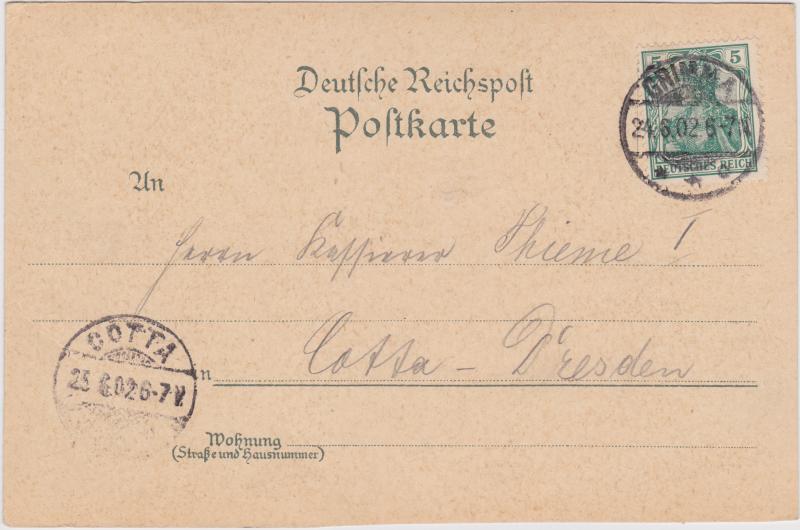 5 5
GRIMMA
24.6.02 6-7V.
* * c
DEUTSCHES REICH
Deutsche Reichspost
Postkarte
An
Herrn Kassierer Thieme I
Cotta - Dresden
COTTA
25.6.02 6-7V.
in
Wohnung
(Straße und Hausnummer)